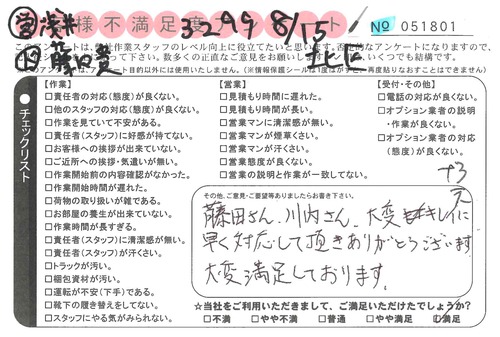 営 浅井 3299 8/15
様不満足度アンケート № 051801
作 藤田貴 北区
このアンケートは、当社作業スタッフのレベル向上に役立てたいと思います。否定的なアンケートになりますので、
下さい。数多くの正直なご意見をお願いします。いくつでも結構です。
※このアンケートは、アンケート目的以外には使用いたしません。(※情報保護シールは1度はがすと、再度貼りなおすことはできません)
チェックリスト
【作業】
□責任者の対応(態度)が良くない。
□他のスタッフの対応(態度)が良くない。
□作業を見ていて不安がある。
□責任者(スタッフ)に好感が持てない。
□お客様への挨拶が出来ていない。
□ご近所への挨拶・気遣いが無い。
□作業開始前の内容確認がなかった。
□作業開始時間が遅れた。
□荷物の取り扱いが雑である。
□お部屋の養生が出来ていない。
□作業時間が長すぎる。
□責任者(スタッフ)に清潔感が無い。
□責任者(スタッフ)が汗くさい。
□トラックが汚い。
□梱包資材が汚い。
□運転が不安(下手)である。
□靴下の履き替えをしてない。
□スタッフにやる気がみられない。
【営業】
□見積もり時間に遅れた。
□見積もり時間が長い。
□営業マンに清潔感が無い。
□営業マンが煙草くさい。
□営業マンが汗くさい。
□営業態度が良くない。
□営業の説明と作業が一致してない。
【受付・その他】
□電話の対応が良くない。
□オプション業者の説明
・作業が良くない。
□オプション業者の対応
(態度)が良くない。
+3
その他、ご意見・ご要望等ありましたらお書き下さい。
藤田さん、川内さん、大変キレイに
早く対応して頂きありがとうございます
大変満足しております。
☆当社をご利用いただきまして、ご満足いただけたでしょうか?
□不満 □やや不満 □普通 □やや満足 □満足